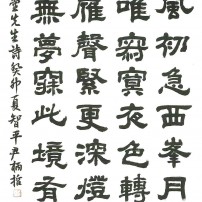 風初急西峯月
唯寂寞夜色轉
雁聲緊更深燈
無夢寐此境有
先生詩癸卯夏智平尹炳哲